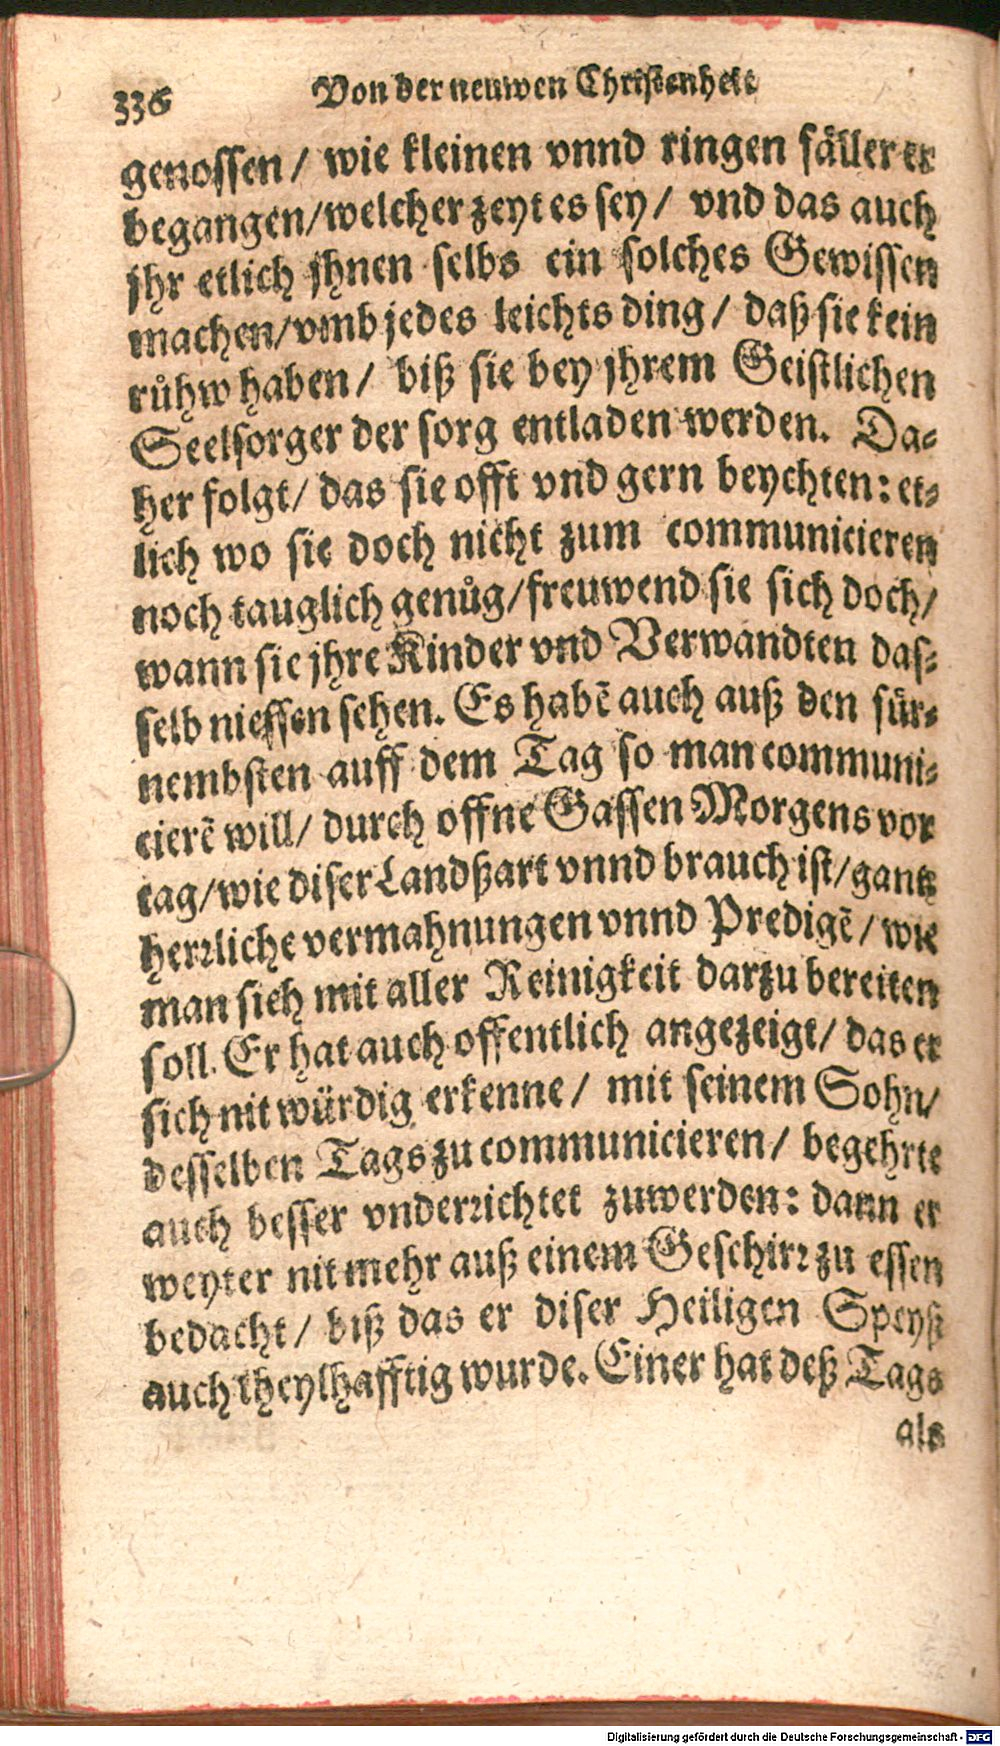 336 Von der neuwen Christenheit
genossen/ wie kleinen vnnd ringen fäller er
begangen/welcher zeyt es sey/ vnd das auch
jhr etlich jhnen selbs ein solches Gewissen
machen/vmb jedes leichts ding/ daß sie kein
růhw haben/ biß sie bey jhrem Geistlichen
Seelsorger der sorg entladen werden. Da-
her folgt/ das sie offt vnd gern beychten: et-
lich wo sie doch nicht zum communicieren
noch tauglich genůg/freuwend sie sich doch/
wann sie jhre Kinder vnd Verwandten das-
selb niessen sehen. Es habẽ auch auß den für-
nembsten auff dem Tag so man communi-
cierẽ will/ durch offne Gassen Morgens vor
tag/wie diser Landßart vnnd brauch ist/gantz
herrliche vermahnungen vnnd Predigẽ/ wie
man sich mit aller Reinigkeit darzu bereiten
soll. Er hat auch offentlich angezeigt/ das er
sich nit würdig erkenne/ mit seinem Sohn/
desselben Tags zu communicieren/ begehrte
auch besser vnderrichtet zuwerden: dann er
weyter nit mehr auß einem Geschirr zu essen
bedacht/ biß das er diser Heiligen Speyß
auch theylhafftig wurde. Einer hat deß Tags
als
Digitalisierung gefördert durch die Deutsche Forschungsgemeinschaft - DFG